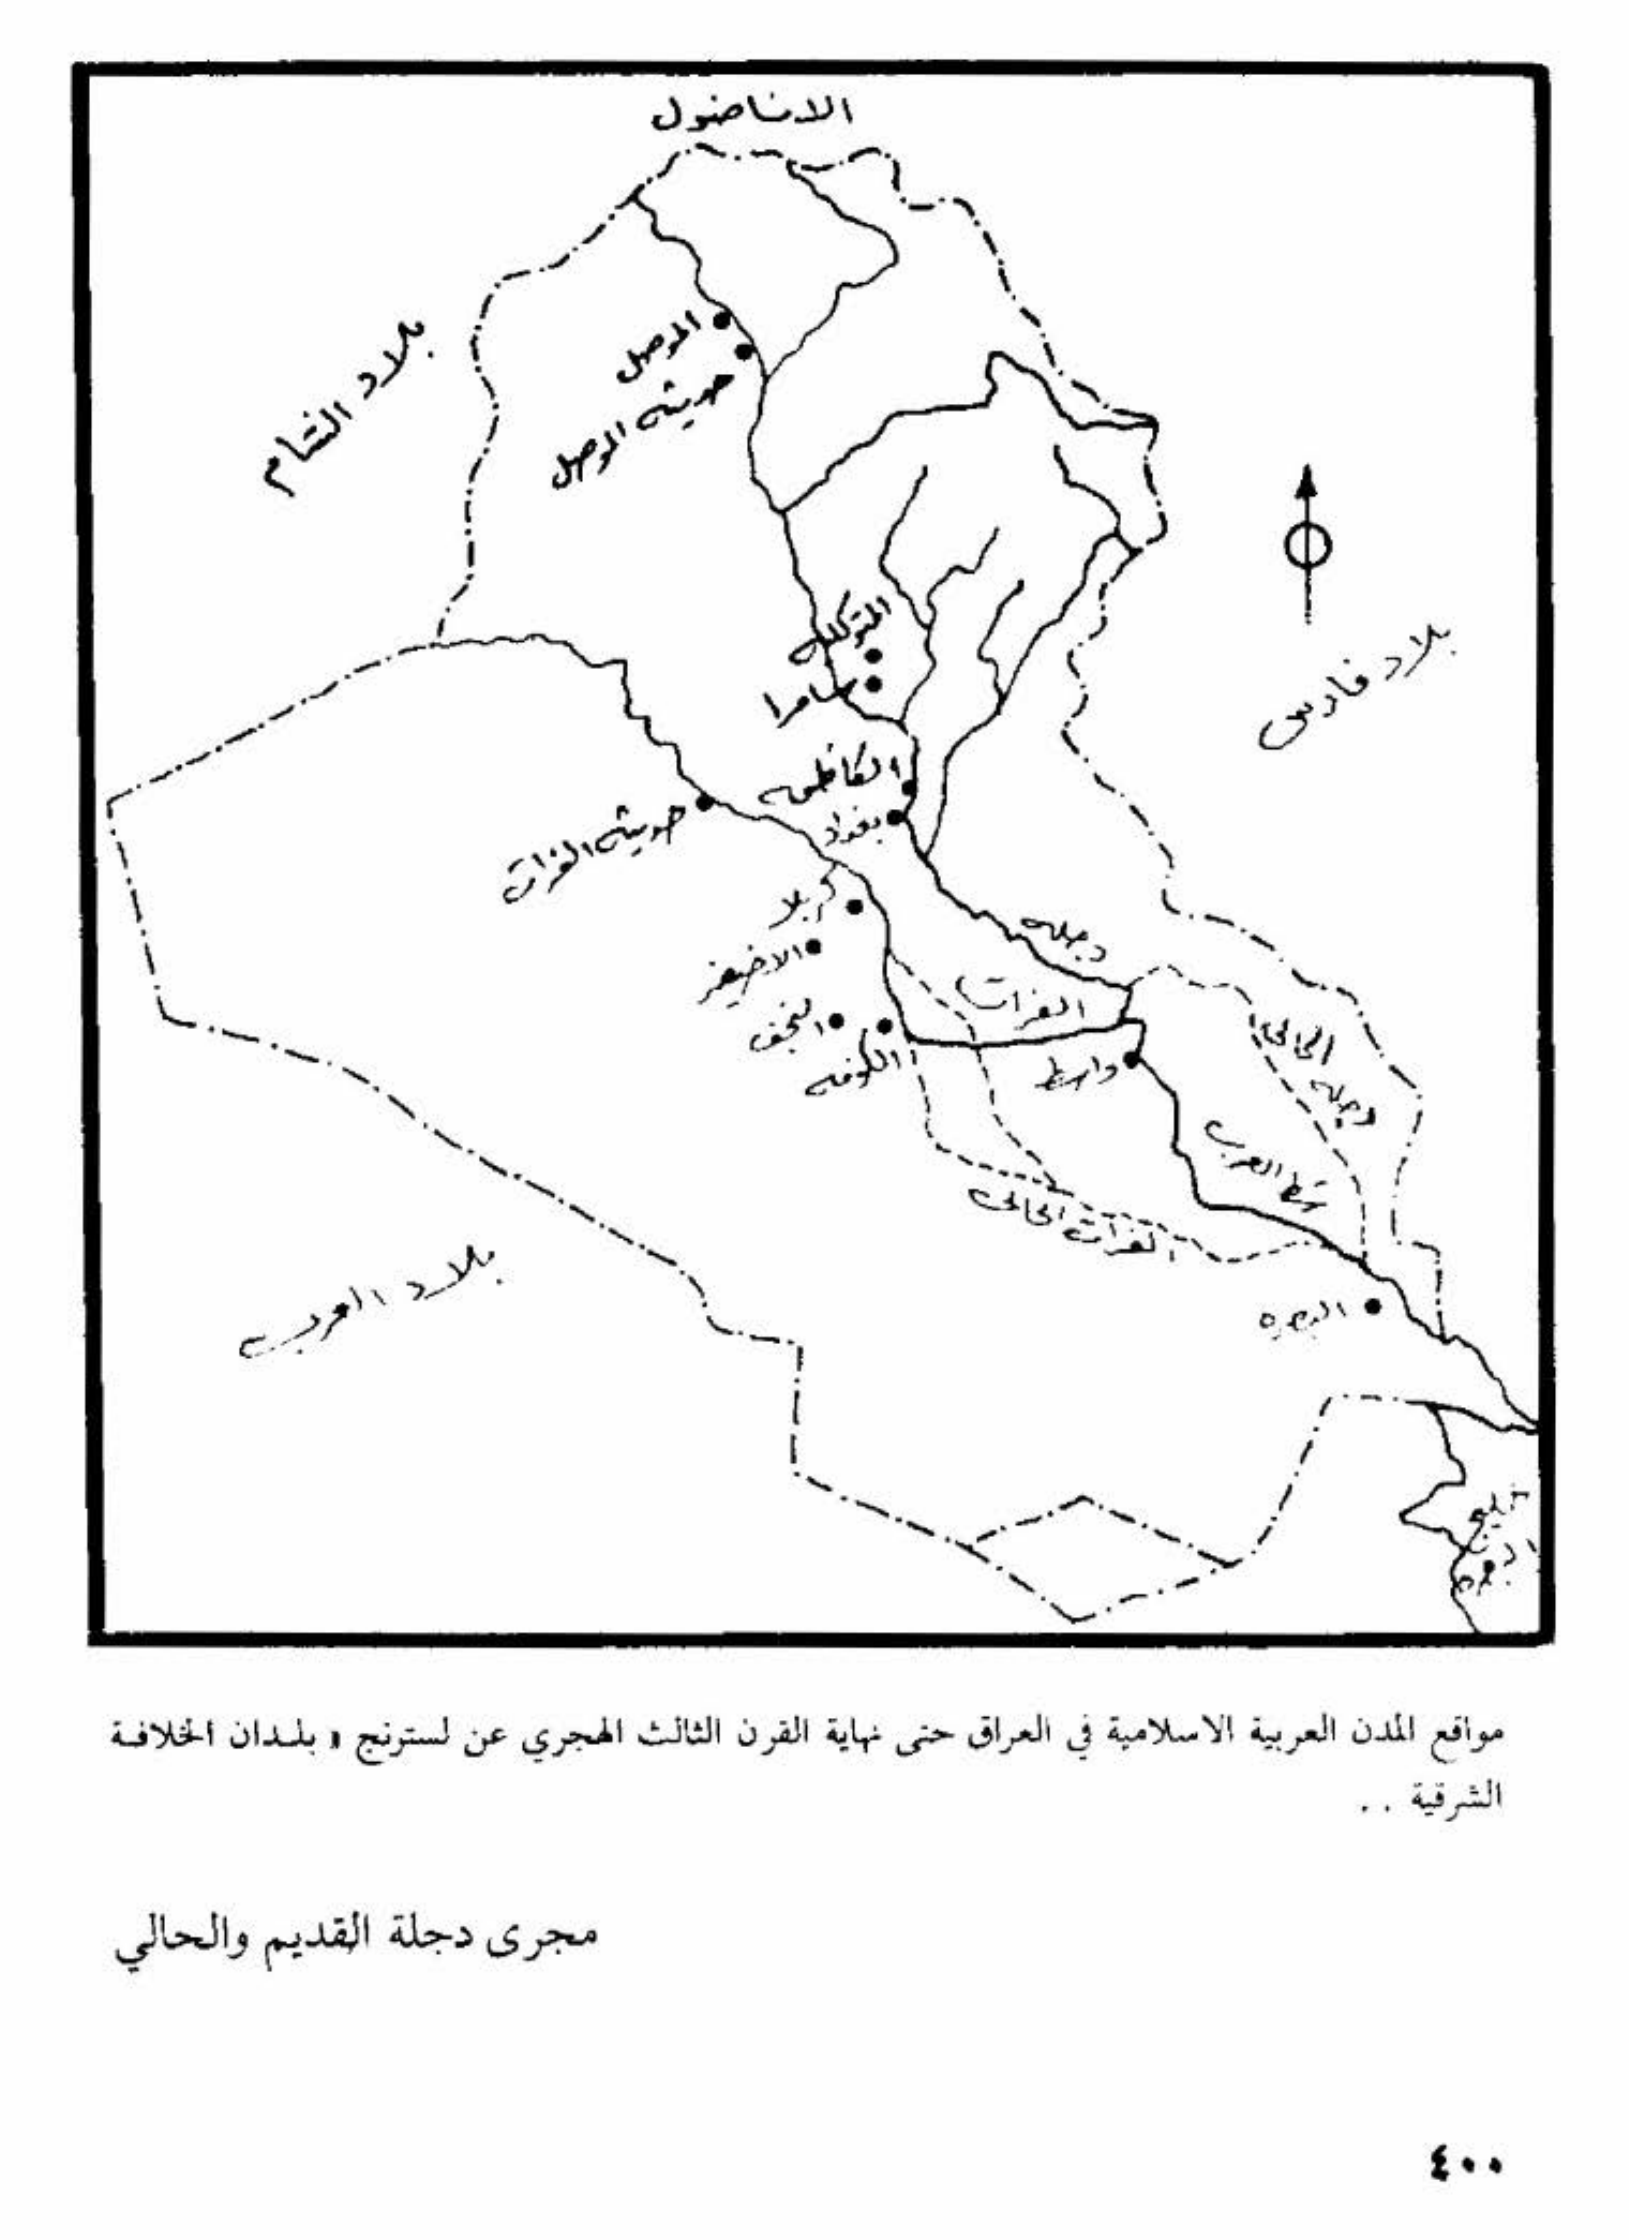 الاناضول
بلاد الشام
الموصل
حديثه الموصل
المتوكليه
سامرا
بلاد فارس
الكاظميه
بغداد
حديثه الفرات
كربلا
الاخيضر
النجف
الكوفه
دجله
الفرات
واسط
دجله الحالي
شط العرب
الفرات الحالي
بلاد العرب
البصره
خليج
مواقع المدن العربية الاسلامية في العراق حتى نهاية القرن الثالث الهجري عن لسترنج « بلدان الخلافة
الشرقية ..
مجرى دجلة القديم والحالي
٤٠٠